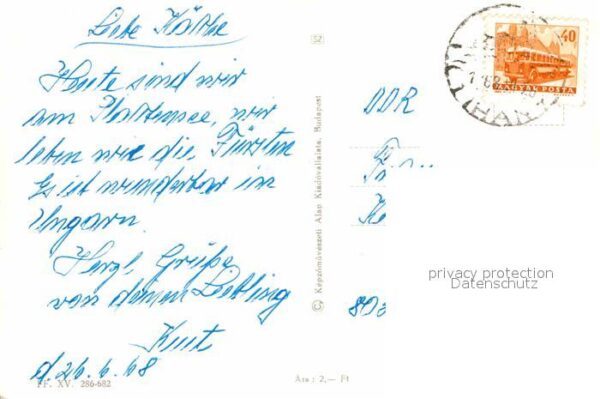 Liebe Käthe
Heute sind wir
am Plattensee, wir
leben wie die Fürsten
Es ist wunderbar in
Ungarn.
Herzl. Grüße
von deinem Liebling
Kurt
d. 26.6.68
FF. XV. 286-682
52
© Képzőművészeti Alap Kiadóvállalata, Budapest
Ára: 2,— Ft
40
MAGYAR POSTA
TIHANY
DDR
privacy protection
Datenschutz